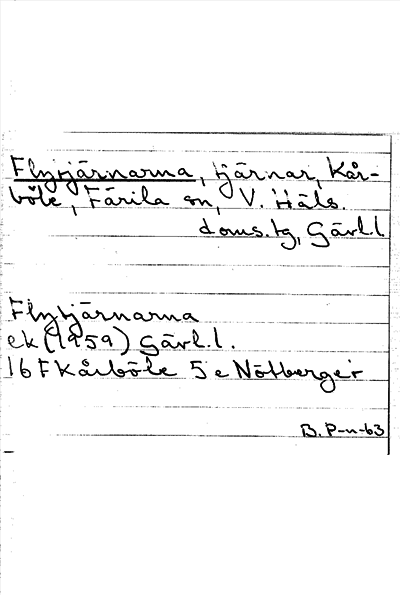 Flytjärnarna, tjärnar, Kår-
böle, Färila sn, V. Häls.
doms.tg, Gävl.l
Flytjärnarna
ek (1959) Gävl.l.
16 F Kårböle 5 e Nötberget
B. P-n-63